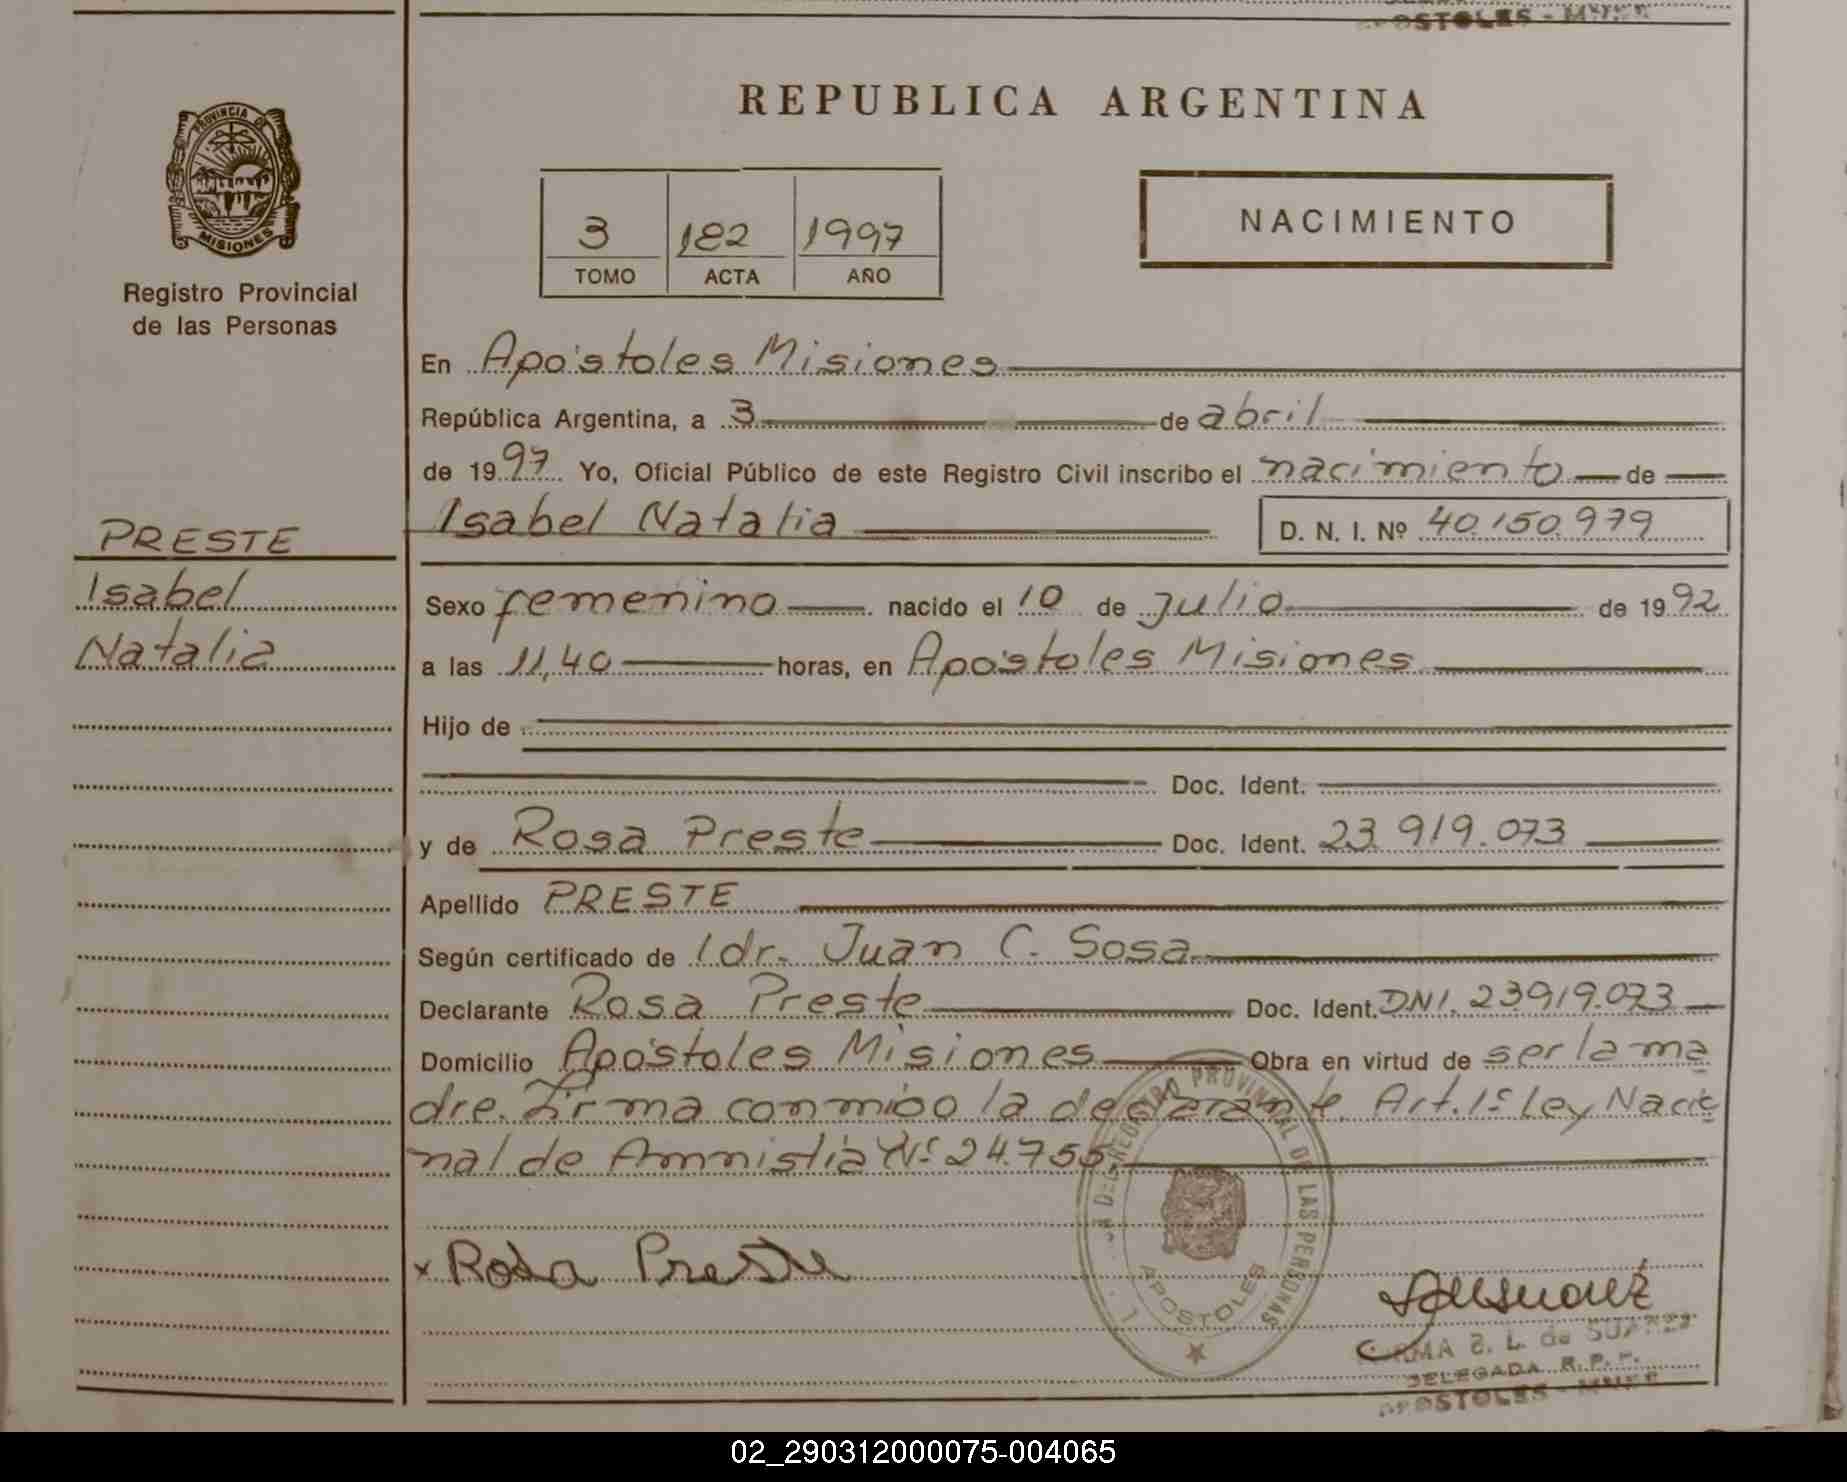 OSTOLES - MNES
REPUBLICA ARGENTINA
PROVINCIA DE
MISIONES
3 182 1997
TOMO ACTA AÑO
NACIMIENTO
Registro Provincial
de las Personas
En Apóstoles Misiones
República Argentina, a 3 de abril
de 1997 Yo, Oficial Público de este Registro Civil inscribo el nacimiento de
Isabel Natalia D. N. I. Nº 40.150.979
PRESTE
Isabel
Natalia
Sexo femenino nacido el 10 de julio de 1992
a las 11,40 horas, en Apóstoles Misiones
Hijo de
Doc. Ident.
y de Rosa Preste Doc. Ident. 23.919.073
Apellido PRESTE
Según certificado de l dr. Juan C. Sosa
Declarante Rosa Preste Doc. Ident. DNI. 23.919.073
Domicilio Apóstoles Misiones Obra en virtud de ser la ma
dre. Firma conmigo la declarante. Art. 1º Ley Nacio
nal de Amnistia Nº 24.755.
REGISTRO PROVINCIAL DE LAS PERSONAS
APOSTOLES
x Rosa Preste
S. L. de
DELEGADA R. P. P.
APOSTOLES - MNES
02_290312000075-004065